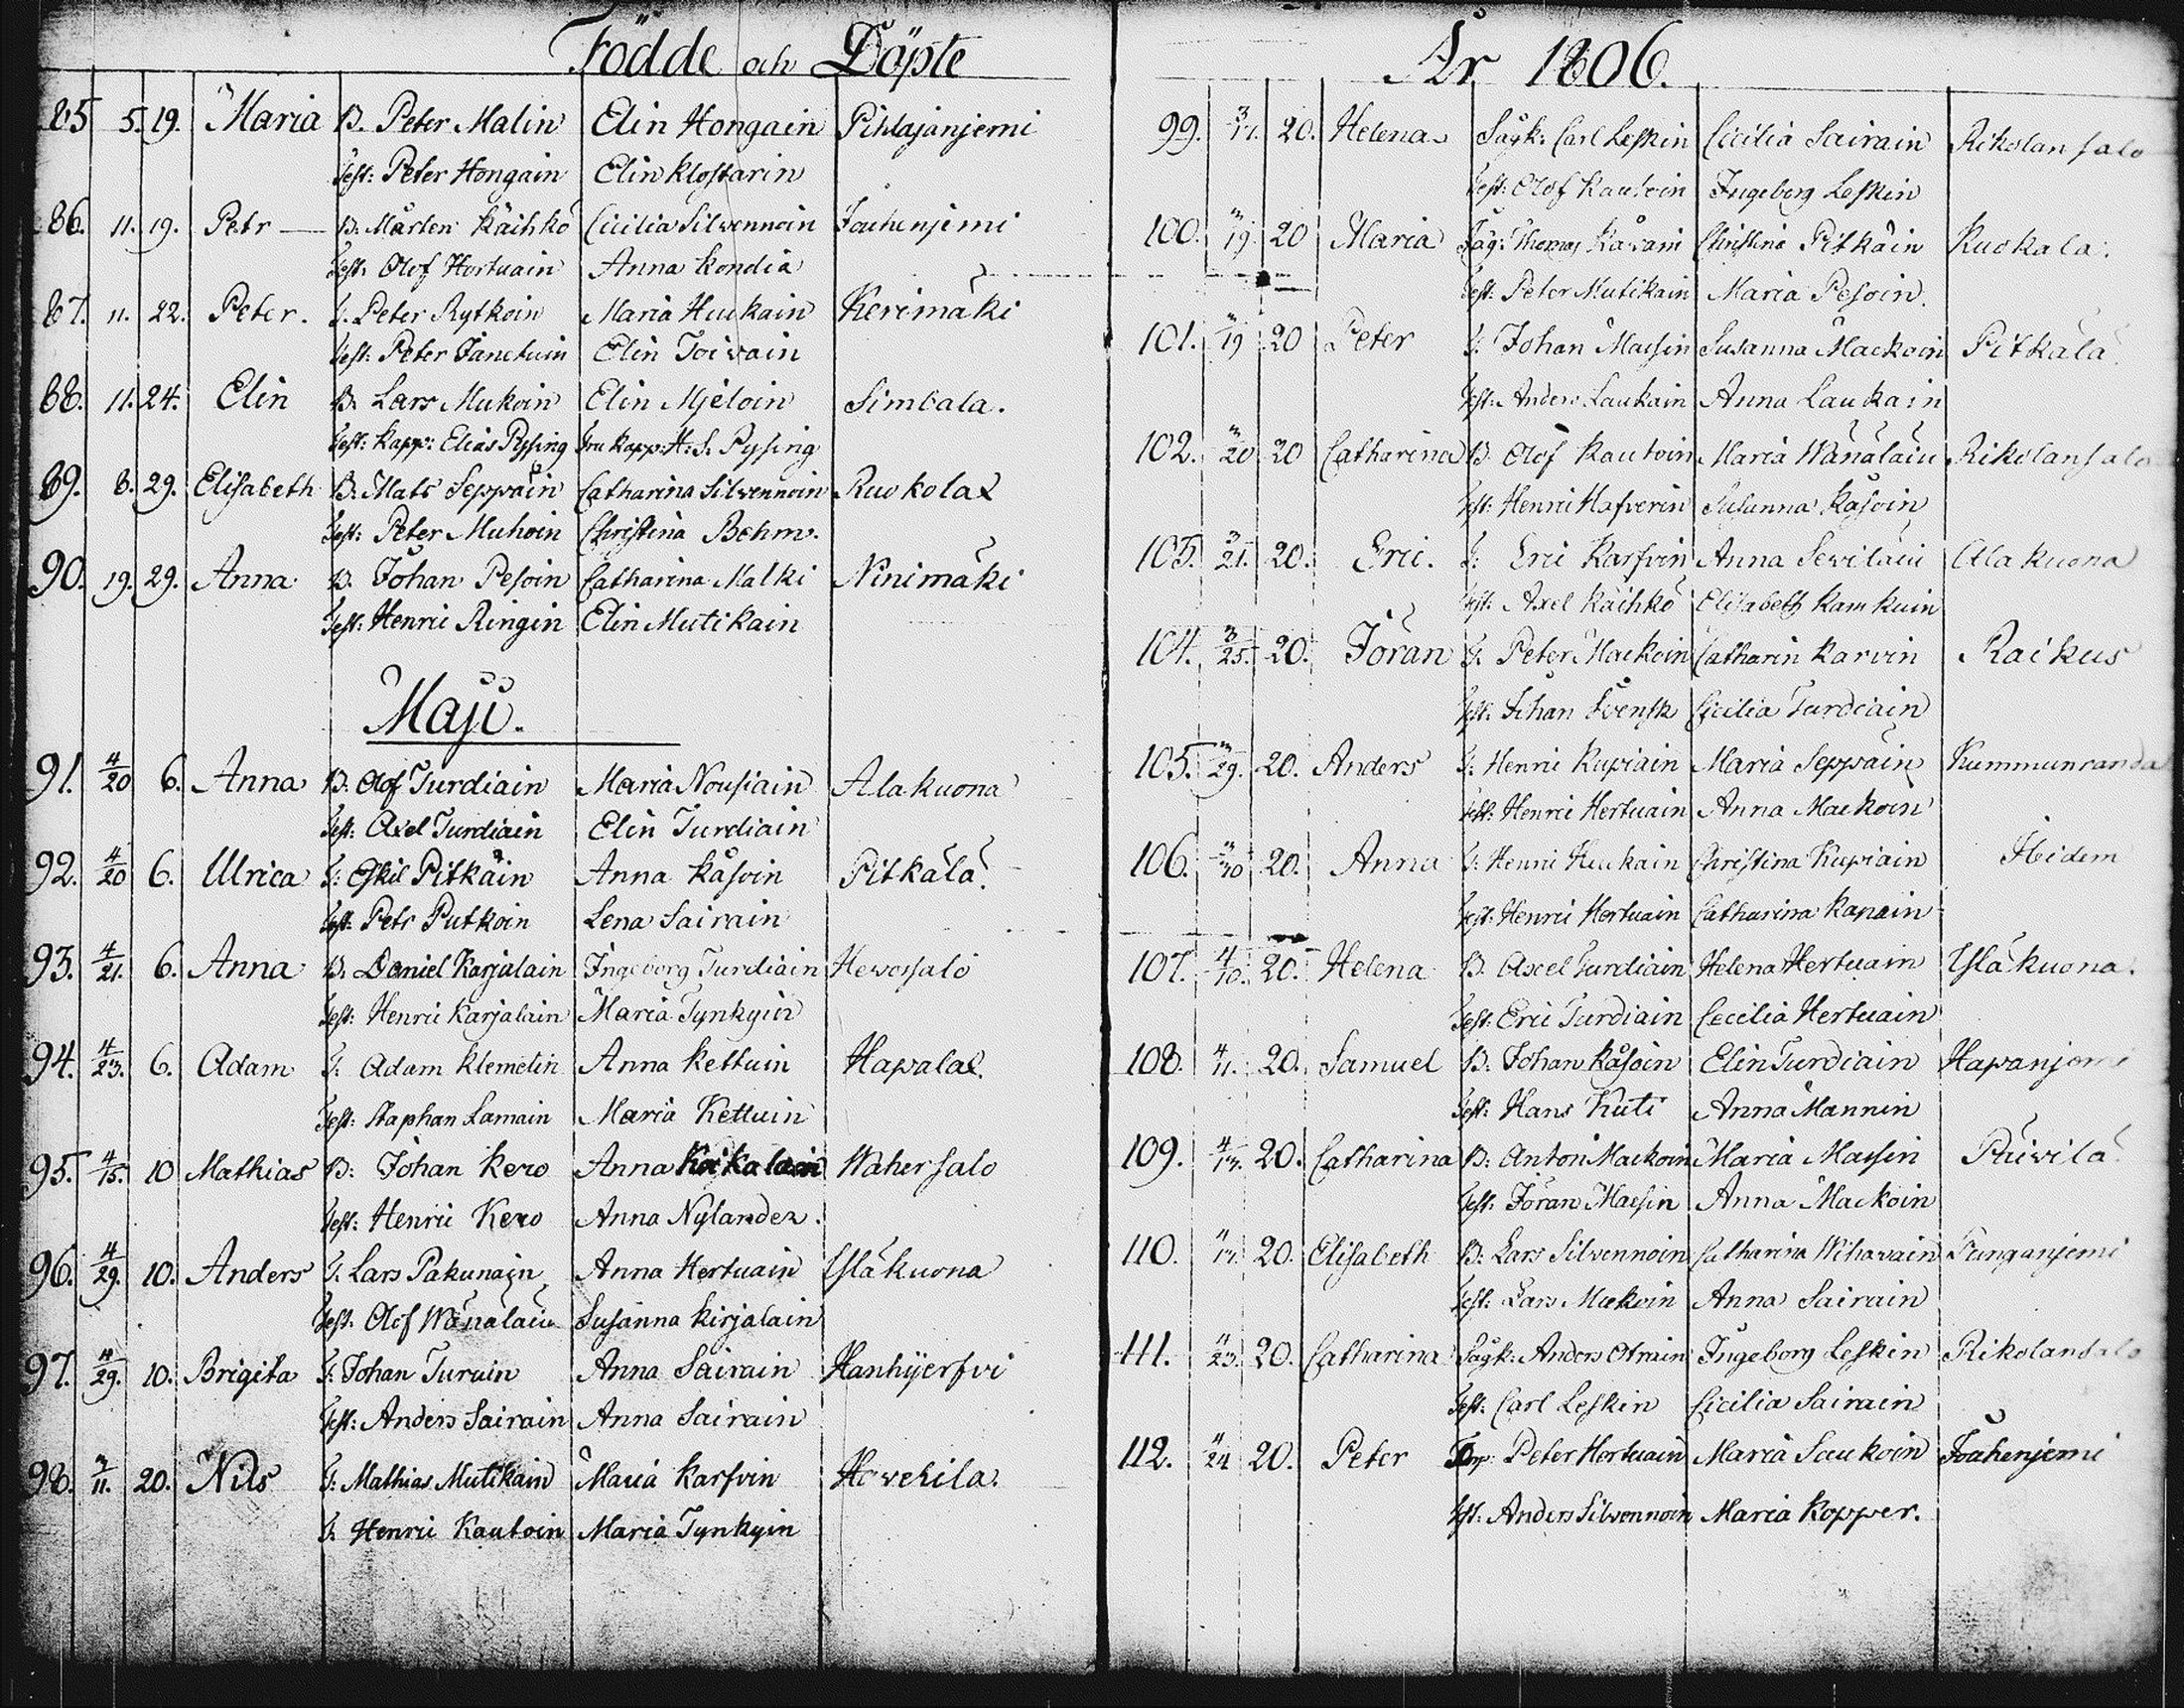 Födde och Döpte
85 5. 19. Maria B. Peter Malin Elin Hongain Pihlajanjemi
Test: Peter Hongain Elin Klostarin
86. 11. 19. Petr — B. Mårten Käihkö Cicilia Silvennoin Jouhenjemi
Test: Olof Hortuain Anna Kondia
87. 11. 22. Peter. T. Peter Rytkoin Maria Huukain Kerimäki
Test: Peter Elin Toivain
88. 11. 24. Elin B. Lars Mukoin Elin Mjeloin Simbala.
Test: Kapp: Elias Pyssing fru Kapp: H: S. Pyssing
89. 8. 29. Elisabeth B. Mats Seppäin Catharina Silvennoin Ruokolax
Test: Peter Muhoin Christina Behm.
90. 19. 29. Anna B. Johan Pesoin Catharina Malki Ninimäki
Test: Henric Ringin Elin Mutikain
Maji.
91. 4/20 6. Anna B. Olof Turdiain Maria Nousiain Alakuona
Test: Axel Turdiain Elin Turdiain
92. 4/20 6. Ulrica T: Eskil Pitkäin Anna Kåsoin Pitkälä.
Test: Petr Putkoin Lena Sairain
93. 4/21. 6. Anna B. Daniel Karjalain Ingeborg Turdiain Hevossalo
Test: Henric Karjalain Maria Tynkyin
94. 4/23. 6. Adam T. Adam Klemetin Anna Kettuin Hapalax.
Test: Staphan Lamain Maria Kettuin
95. 4/15. 10 Mathias B: Johan Kero Anna Wahersalo
Test: Henric Kero Anna Nylander.
96. 4/29. 10. Anders T. Lars Pakunain Anna Hertuain Yläkuona
Test. Olof Wänäläin Susanna Kirjalain
97. 4/29. 10. Brigita T: Johan Turuin Anna Sairain Hanhijerfvi
Test: Anders Sairain Anna Sairain
98. 3/11. 20. Nils T: Mathias Mutikain Maria Karfvin Hovehila.
T. Henric Kautoin Maria Tynkyin
År 1806.
99. 3/17. 20. Helena Sågk: Carl Leskin Cicilia Sairain Rikolansalo
Test: Olof Kautoin Ingeborg Leskin
100. "/19. 20 Maria Såg: Thomas Kåvain Christina Pitkäin Kuokala.
Test: Peter Mutikain Maria Pesoin.
101. "/19 20 Peter T. Johan Maesin Susanna Mackoin Pitkälä.
Test: Anders Laukain Anna Laukain
102. "/20 20 Catharina B. Olof Kautoin Maria Wänäläin Rikolansalo
Test: Henric Hafverin Susanna Kåsoin
103. 3/21. 20. Eric. T. Eric Karfvin Anna Seviläin Alakuona
Test. Axel Käihkö Elisabeth Kamkuin
104. 3/25. 20. Jöran T. Peter Mackoin Catharin Karvin Raikus
Test. Johan Svensk Cicilia Turdiain
105. "/29. 20. Anders T. Henric Kupiain Maria Seppäin Kummunranda
Test. Henric Hertuain Anna Mackoin
106. "/30 20. Anna T. Henric Huukain Christina Kupiain Ibidem
Test. Henric Hortuain Catharina Kanain
107. 4/10. 20. Helena B. Axel Turdiain Helena Hertuain Yläkuona.
Test: Eric Turdiain Cecilia Hertuain
108. 4/11. 20. Samuel B: Johan Kåsoin Elin Turdiain Hapanjemi
Test: Hans Kuti Anna Mannin
109. 4/13. 20. Catharina B: Anton Mackoin Maria Maesin Päivilä
Test. Jöran Maesin Anna Mackoin
110. "/13. 20. Elisabeth B: Lars Silvennoin Catharina Wihavain Punganjemi
Test: Lars Mukoin Anna Sairain
111. "/23. 20. Catharina Sågk: Anders Otrain Ingeborg Leskin Rikolansalo
Test. Carl Leskin Cicilia Sairain
112. "/24 20. Peter Torp: Peter Hortuain Maria Saukoin Jouhenjemi
Test. Anders Silvennoin Maria Kopper.